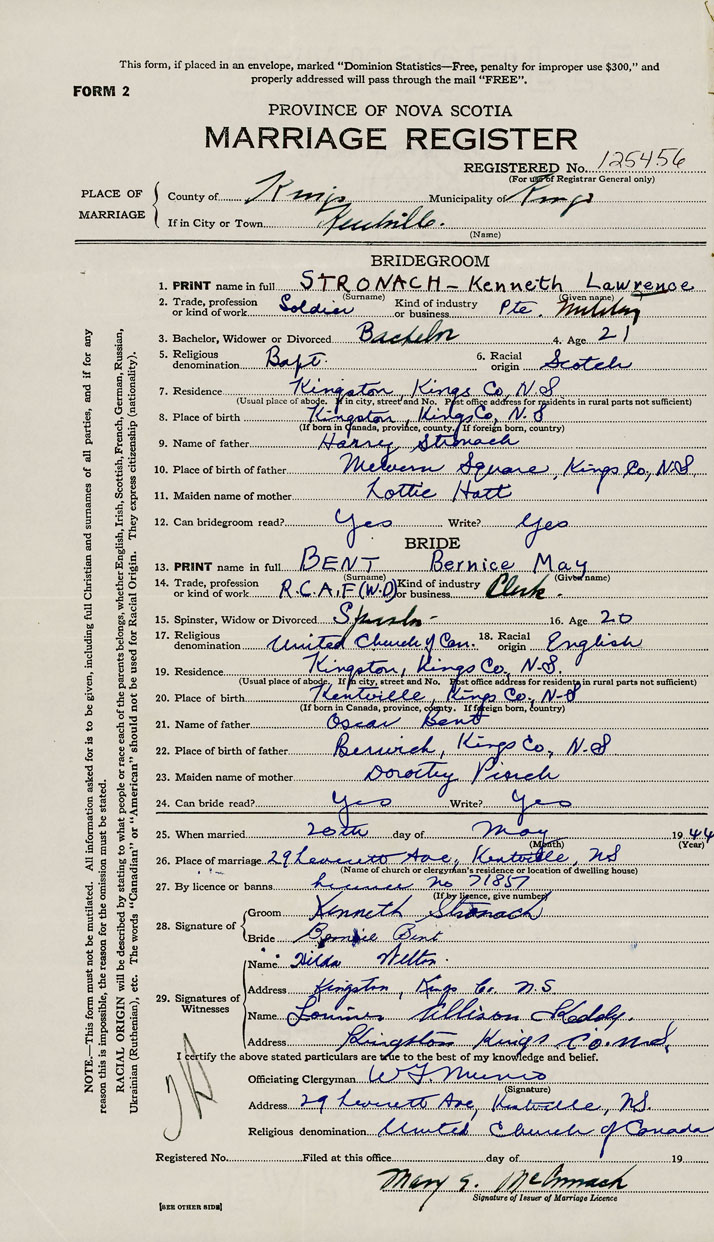 This form, if placed in an envelope, marked “Dominion Statistics—Free, penalty for improper use $300,” and
properly addressed will pass through the mail “FREE”.
FORM 2
PROVINCE OF NOVA SCOTIA
MARRIAGE REGISTER
REGISTERED No. 125456
(For use of Registrar General only)
PLACE OF MARRIAGE
County of Kings Municipality of Kings
If in City or Town Kentville.
(Name)
BRIDEGROOM
1. PRINT name in full STRONACH - Kenneth Lawrence
(Surname) (Given name)
2. Trade, profession or kind of work Soldier Kind of industry or business Pte. Military
3. Bachelor, Widower or Divorced Bachelor 4. Age 21
5. Religious denomination Bapt. 6. Racial origin Scotch
7. Residence Kingston, Kings Co, N.S
(Usual place of abode. If in city, street and No. Post office address for residents in rural parts not sufficient)
8. Place of birth Kingston, Kings Co, N.S
(If born in Canada, province, county. If foreign born, country)
9. Name of father Harry Stronach
10. Place of birth of father Melvern Square, Kings Co, N.S.
11. Maiden name of mother Lottie Hatt
12. Can bridegroom read? Yes Write? Yes
BRIDE
13. PRINT name in full BENT Bernice May
(Surname) (Given name)
14. Trade, profession or kind of work R.C.A.F (W.D) Kind of industry or business Clerk.
15. Spinster, Widow or Divorced Spinster 16. Age 20
17. Religious denomination United Church of Can. 18. Racial origin English
19. Residence Kingston, Kings Co, N.S.
(Usual place of abode. If in city, street and No. Post office address for residents in rural parts not sufficient)
20. Place of birth Kentville, Kings Co, N-S
(If born in Canada, province, county. If foreign born, country)
21. Name of father Oscar Bent
22. Place of birth of father Berwick, Kings Co, N-S
23. Maiden name of mother Dorothy
24. Can bride read? Yes Write? Yes
25. When married 20th day of May 1944
(Month) (Year)
26. Place of marriage 29 Leverett Ave, Kentville, NS
(Name of church or clergyman's residence or location of dwelling house)
27. By licence or banns licence no 71857
(If by licence, give number)
28. Signature of
Groom Kenneth Stronach
Bride Bernice Bent
29. Signatures of Witnesses
Name Hilda Welton.
Address Kingston, Kings Co. N.S.
Name Allison Keddy.
Address Kingston Kings Co. N.S.
I certify the above stated particulars are true to the best of my knowledge and belief.
Officiating Clergyman W. Munro
(Signature)
Address 29 Leverett Ave, Kentville, NS.
Religious denomination United Church of Canada
Registered No. Filed at this office day of 19
Mary McCormack
Signature of Issuer of Marriage Licence
[SEE OTHER SIDE]
NOTE.—This form must not be mutilated. All information asked for is to be given, including full Christian and surnames of all parties, and if for any
reason this is impossible, the reason for the omission must be stated.
RACIAL ORIGIN will be described by stating to what people or race each of the parents belongs, whether English, Irish, Scottish, French, German, Russian,
Ukrainian (Ruthenian), etc. The words “Canadian” or “American” should not be used for Racial Origin. They express citizenship (nationality).